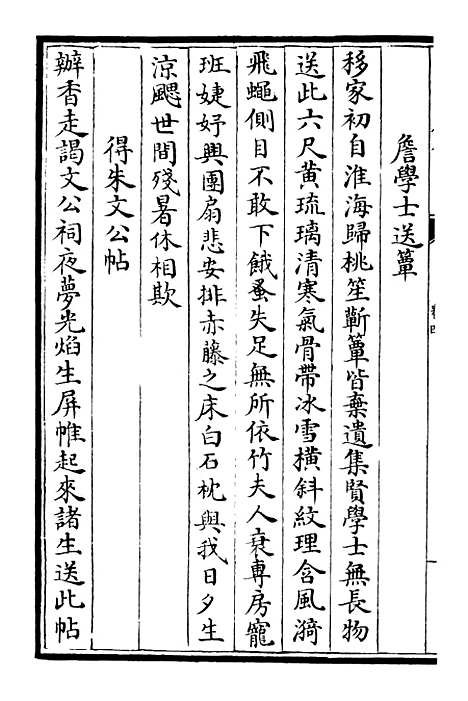 詹學士送簟
移家初自淮海歸桃笙蘄簟皆棄遺集賢學士無長物
送此六尺黄琉璃清寒氣骨帶冰雪橫斜紋理含風漪
飛蠅側目不敢下餓蚤失足無所依竹夫人衰專房寵
班婕妤興團扇悲安排赤藤之床白石枕與我日夕生
涼颸世間殘暑休相欺
得朱文公帖
辦香走謁文公祠夜夢光焰生屏帷起來諸生送此帖